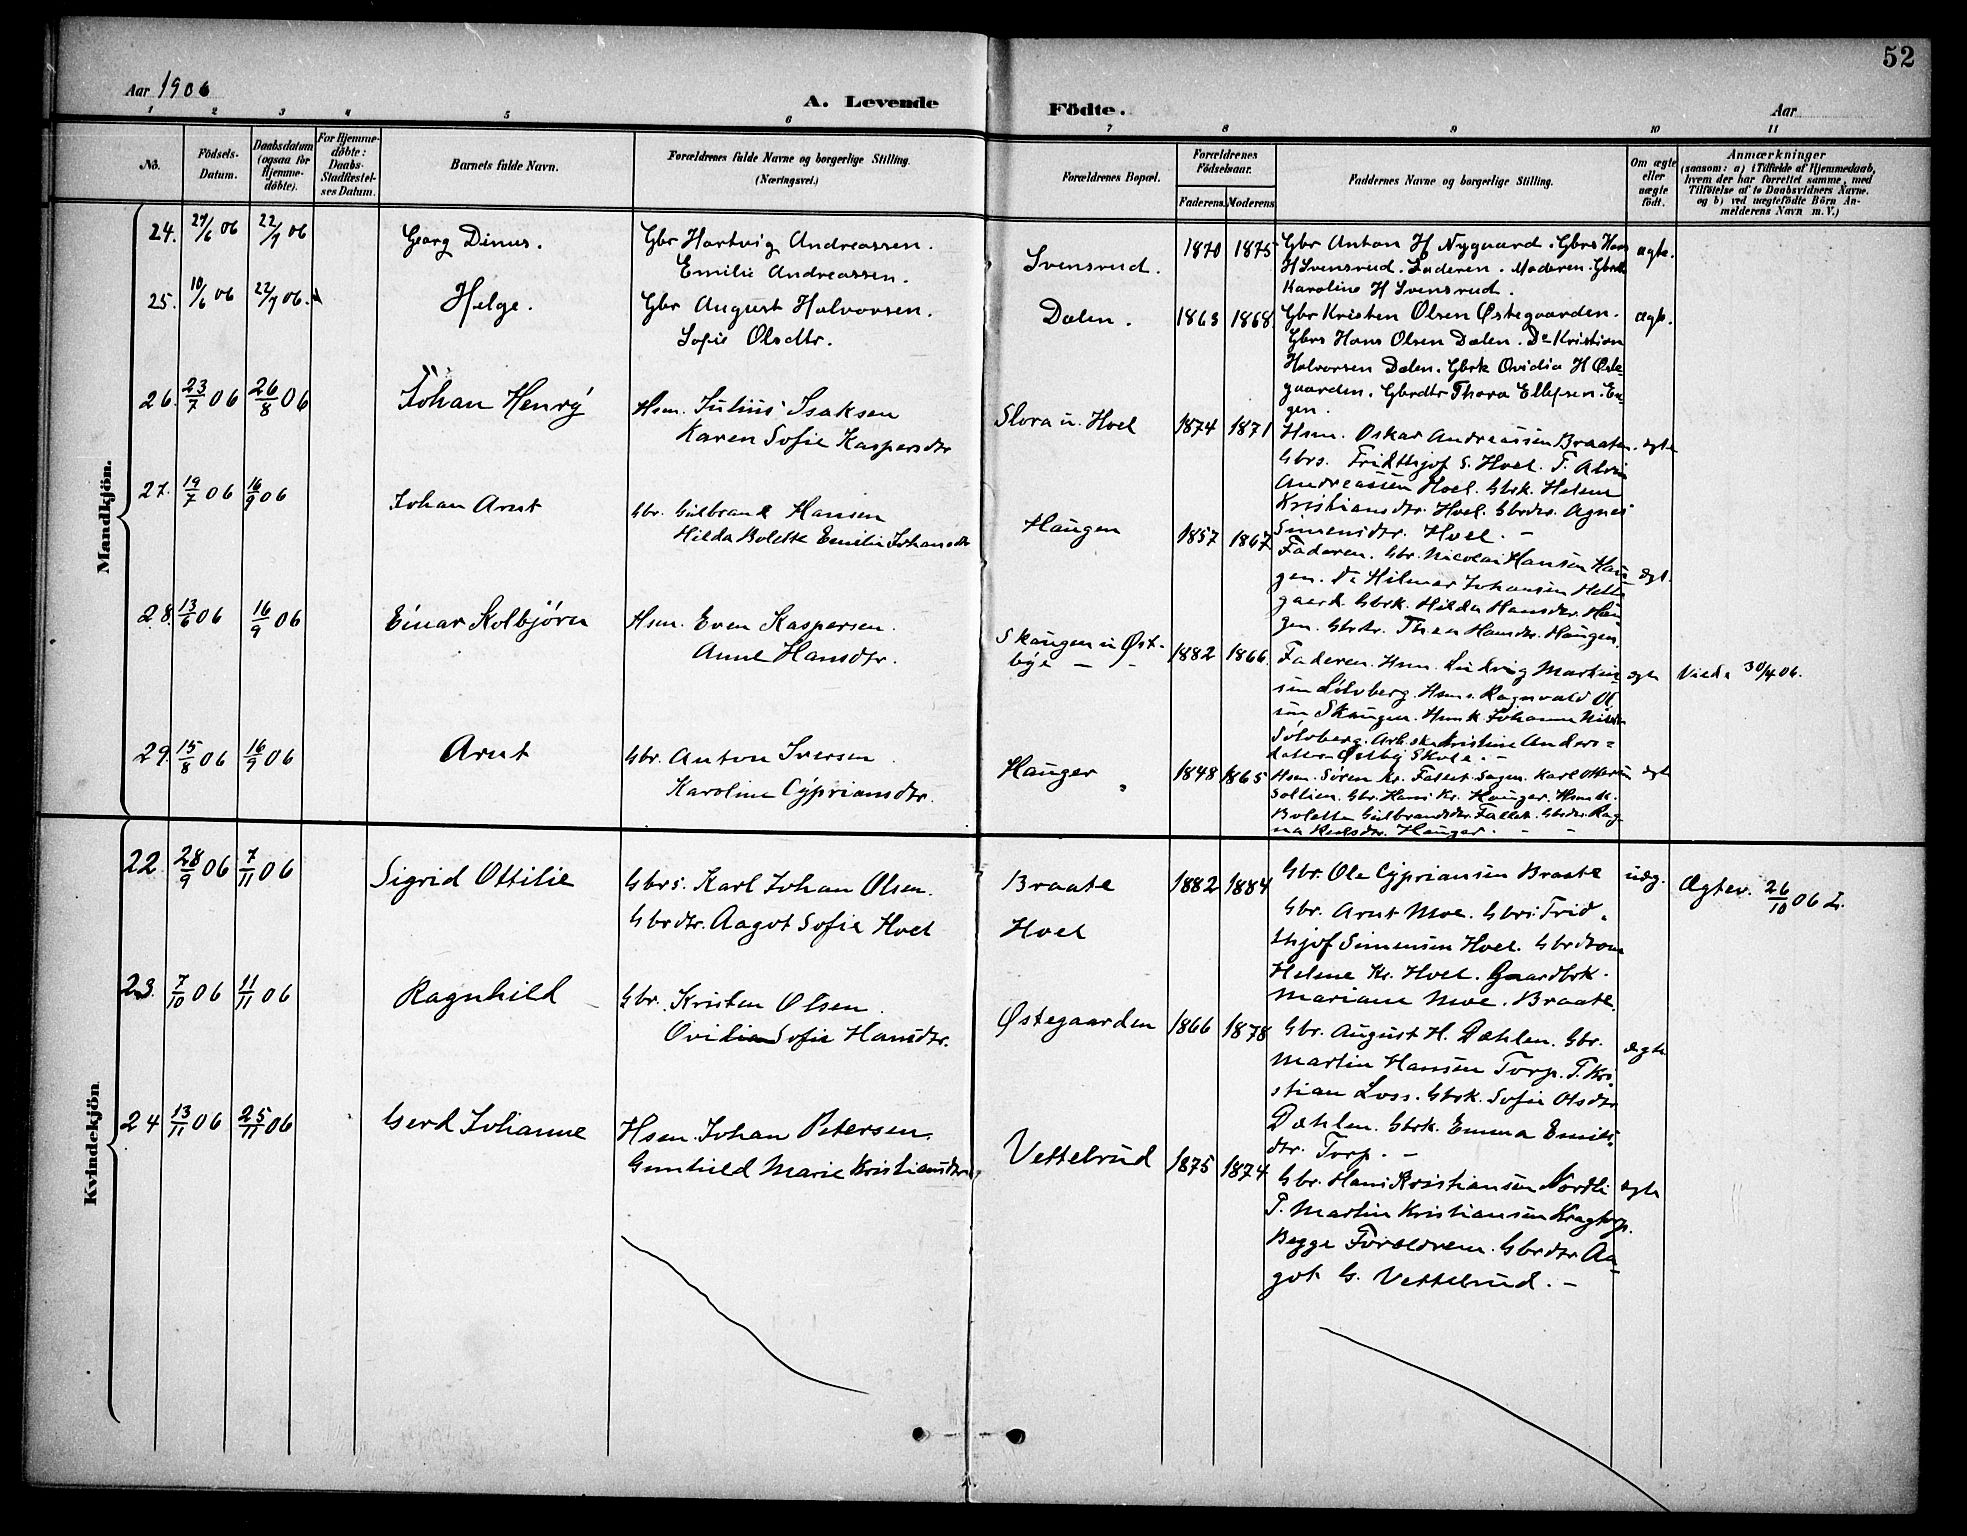 52
Aar 1906
A. Levende Födte.
Aar
1 2 3 4 5 6 7 8 9 10 11
No.
Födsels-
Datum.
Daabsdatum
(ogsaa for
Hjemme-
døbte).
For Hjemme-
døbte:
Daabs-
Stadfæstel-
ses Datum.
Barnets fulde Navn.
Forældrenes fulde Navne og borgerlige Stilling.
(Næringsvei.)
Forældrenes Bopæl.
Forældrenes
Födselsaar.
Faderens. Moderens.
Faddernes Navne og borgerlige Stilling.
Om ægte
eller
uægte
födt.
Anmærkninger
(saasom: a) i Tilfælde af Hjemmedaab,
hvem der har forrettet samme, med
Tilföielse af to Daabsvidners Navne.
og b) ved uægtefödte Börn An-
melderens Navn m. V.)
Mandkjön.
24. 27/6 06 22/7 06 Georg Dinus. Gbr Hartvig Andreassen.
Emilie Andreassen.
Svensrud. 1870 1875
Gbr Anton H Nygaard. Gbrs Hans
H Svensrud. Faderen. Moderen. Gbrk
Karoline H Svensrud.
ægte.
25. 10/6 06 22/7 06. Helge. Gbr August Halvorsen.
Sofie Olsdtr.
Dælen. 1863 1868
Gbr Kristen Olsen Østegaarden.
Gbrs Hans Olsen Dælen. Do Kristian
Halvorsen Dælen. Gbrk Ovidia H Øste-
gaarden. Gbrdtr Thora Ellefsen En-
gen.
ægte.
26. 23/7 06 26/8 06 Johan Henry Hsm. Julius Isaksen
Karen Sofie Kaspersdtr
Slora u. Hoel 1874 1871
Hsm. Oskar Andreassen Braaten.
Gbrs. Fridthjof S. Hoel. T. Alvin
Andreassen Hoel. Gbrk. Helene
Kristiansdtr. Hoel. Gbrdtr. Agnes
Simensdtr. Hoel. –
ægte
27. 19/7 06 16/9 06 Johan Arnt Gbr. Gulbrand Hansen
Hilda Bolette Emilie Johansdtr
Haugen 1857 1867
Faderen. Gbr. Nicolai Hansen Hau-
gen. Do Hilmar Johansen Helle
gaard. Gbrk. Hilda Hansdtr. Hau
gen. Gbrdtr. Thea Hansdtr. Haugen.
ægt.
28. 13/6 06 16/9 06 Einar Kolbjörn Hsm. Even Kaspersen.
Anne Hansdtr.
Skaugen u Øst-
bye – – 1882 1866
Faderen. Hsm. Ludvig Martin
sen Sölvberg. Hsms. Ragnvald Ol
sen Skaugen. Hsmk. Johanne
Sölvberg. Kristine Anders-
datter Østby Skole. –
ægte Viede 30/4 06.
29. 15/8 06 16/9 06 Arnt Gbr. Anton Iversen
Karoline Cypriansdtr.
Hauger 1848 1865
Hsm. Sören Kr. Fallet. Karl Ottersen
Sollien. Gbr. Hans Kr. Hauger. Hsmk.
Bolette Gulbrandsdtr. Fallet. Gbrdtr. Rag-
na Hauger. – –
ægte
Kvindekjön
22 28/9 06 7/11 06 Sigrid Ottilie Gbrs. Karl Johan Olsen.
Gbrdtr. Aagot Sofie Hoel
Braate
Hoel
1882 1884
Gbr. Ole Cypriansen Braate
Gbr. Arnt Moe. Gbrs. Frid-
thjof Simensen Hoel.
Helene Kr. Hoel. Gaardbrk.
Mariane Moe. Braate.
uæg. Ægtev. 26/10 06
23. 7/10 06 11/11 06 Ragnhild Gbr. Kristen Olsen.
Ovidia Sofie Hansdtr.
Østegaarden 1866 1878
Gbr. August H. Dæhlen. Gbr.
Martin Hansen Torp. T. Kri-
stian Loss. Gbrk. Sofie Olsdtr
Dæhlen. Gbrk. Emma Emils-
dtr. Torp. –
ægte
24 13/11 06 25/11 06 Gerd Johanne Hsm. Johan Petersen.
Gunhild Marie Kristiansdtr.
Vettebrud 1875 1874
Gbr. Hans Kristiansen Nordli
T. Martin Kristiansen Kragtorp.
Begge Forældrene. Gbrdtr. Aa-
got G. Vettebrud. –
ægte